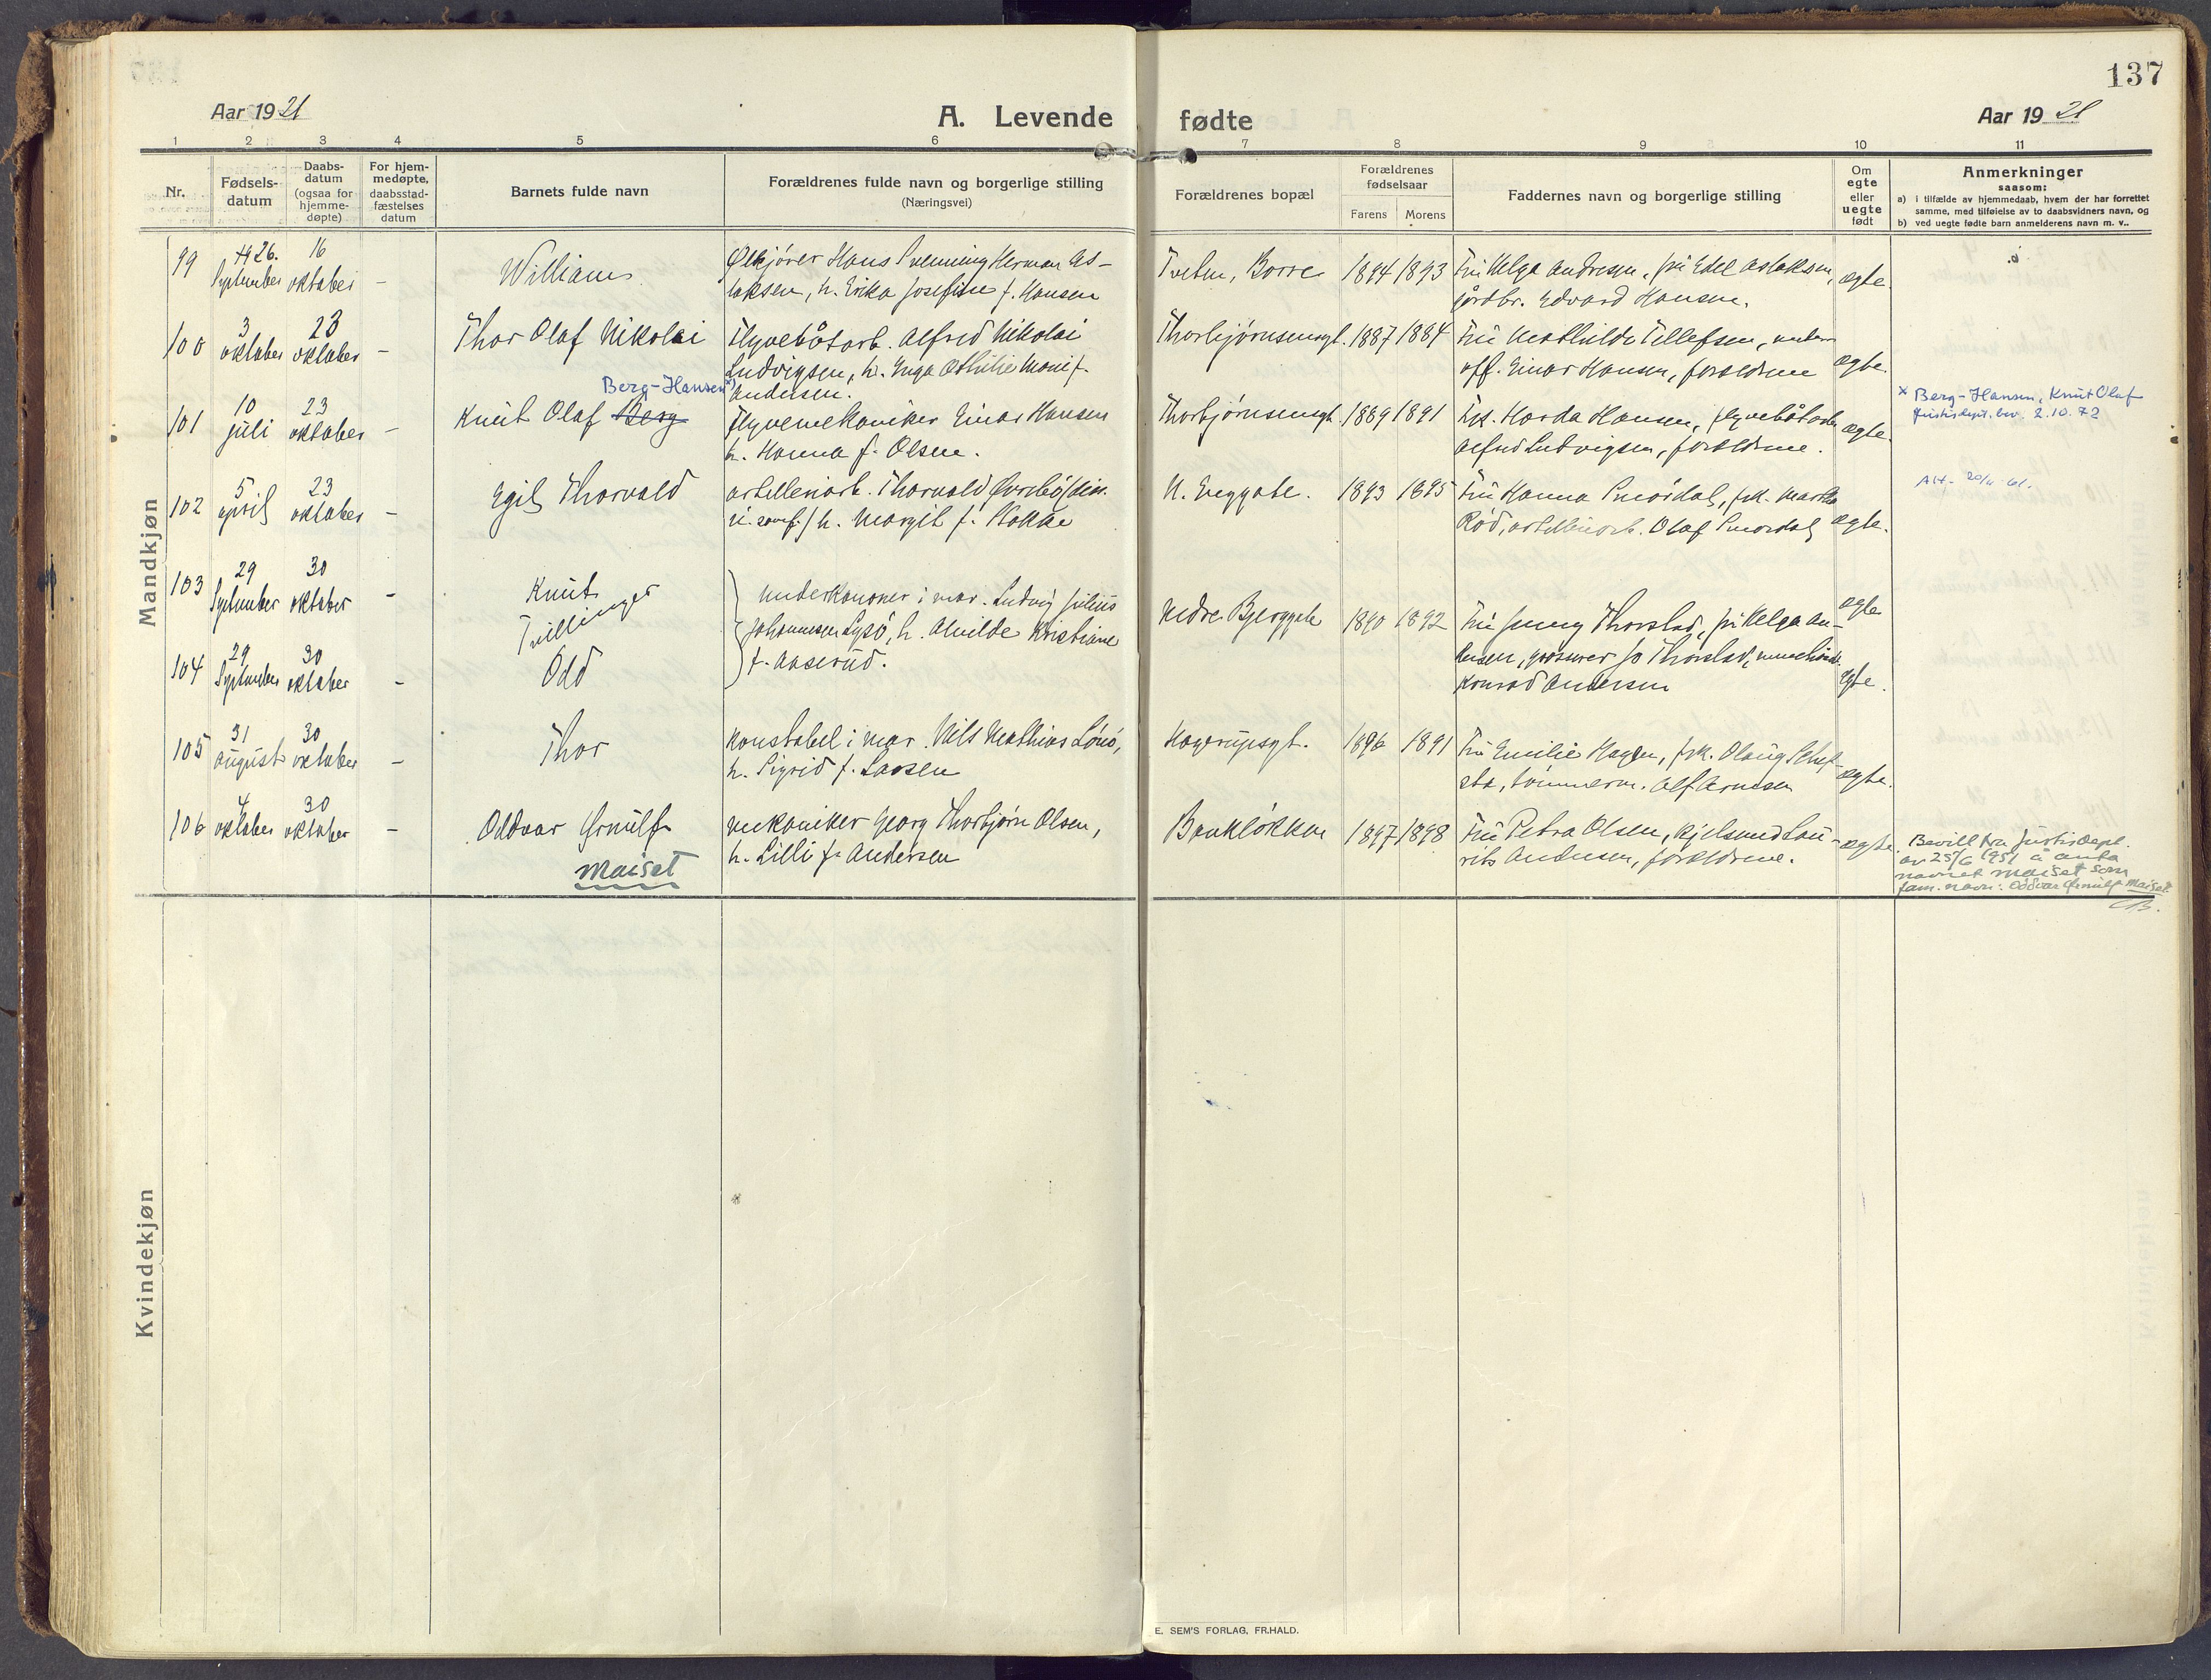 137
Aar 1921
A. Levende fødte
Aar 1921
1 2 3 4 5 6 7 8 9 10 11
Nr.
Fødsels-
datum
Daabs-
datum
(ogsaa for
hjemme-
døpte)
For hjem-
medøpte,
daabsstad-
fæstelses
datum
Barnets fulde navn
Forældrenes fulde navn og borgerlige stilling
(Næringsvei)
Forældrenes bopæl
Forældrenes
fødselsaar
Farens Morens
Faddernes navn og borgerlige stilling
Om
egte
eller
uegte
født
Anmerkninger
saasom:
a) i tilfælde av hjemmedaab, hvem der har forrettet
samme, med tilføielse av to daabsvidners navn, og
b) ved uegte fødte barn anmelderens navn m. v..
Mandkjøn
99 26. September 16 oktober - William
Ølkjører Hans Svenning Herman As-
laksen, h. Erika Josefine f. Hansen
Tveten, Borre 1894 1893
Fru Helga Andresen, fru Edel Aslaksen,
jordbr. Edvard Hansen.
ægte.
100 3 oktober 23 oktober - Thor Olaf Nikolai
Flyvebåtarb. Alfred Nikolai
Ludvigsen, h. Inga Othilie Marie f.
Andersen.
Thorbjørnsensgt. 1887 1884
Fru Mathilde Tellefsen, under-
off. Einar Hansen, forældrene
ægte.
101 10 juli 23 oktober - Knut Olaf Berg
Berg-Hansen x)
Flyvemekaniker Einar Hansen
h. Hanna f. Olsen.
Thorbjørnsensgt. 1889 1891
Frk. Harda Hansen, flyvebåtarb.
Alfred Ludvigsen, forældrene.
ægte.
x Berg-Hansen, Knut Olaf
Justisdept. bev. 2.10.72
102 5 april 23 oktober - Egil Thorvald
artilleriarb. Thorvald Øvrebø (diss.
h. Margit f. Stokke
N. Enggate. 1893 1895
Fru Hanna Snordal, frk. Martha
Rød, artilleriarb. Olaf Snordal
ægte.
Att. 20/11 61.
103 29 September 30 oktober - Knut
Tvillinger
underkanoner i mar. Ludvig Julius
Johannesen Lysø, h. Alvilde Kristiane
f. Aaserud.
Nedre Bjerggate 1890 1892
Fru Jenny Thorstad, fru Helga An-
dersen, Jo Thorstad,
Konrad Andersen
ægte
104 29 September 30 oktober - Odd
ægte.
105 31 august 30 oktober - Thor
Konstabel i mar. Nils Mathias Lønø,
h. Sigrid f. Larsen
Hagerupsgt. 1896 1891
Fru Emilie Hagen, frk. Olaug
tømmerm. Alf Arnesen
ægte.
106 4 oktober 30 oktober - Oddvar Ørnulf
Maiset
mekaniker Georg Thorbjørn Olsen,
h. Lilli f. Andersen
Bankløkken 1897 1898
Fru Petra Olsen, kjelsmed Lau-
rits Andersen, forældrene.
ægte.
Bevill fra Justisdept.
av 25/6 1951 å anta
navnet Maiset som
fam. navn: Oddvar Ørnulf Maiset.
Kvindekjøn
E. SEM'S FORLAG, FR.HALD.